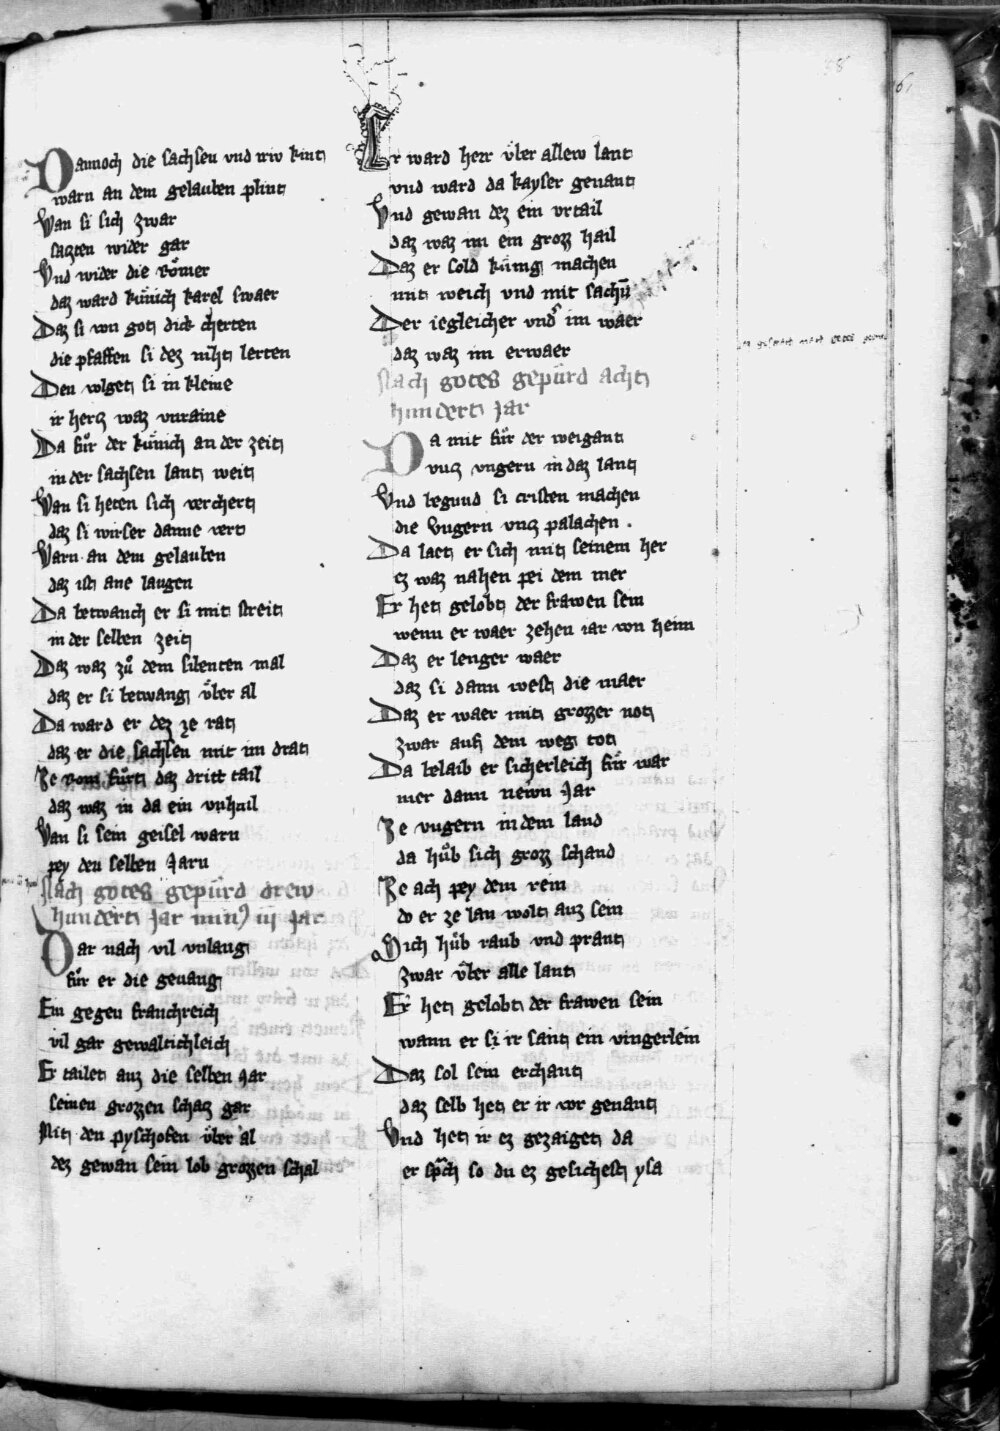 Dannoch die sachsen vnd iriv kint
warn an dem gelauben plint
Wan si sich zwar
saczten wider gar
Vnd wider die Roͤmer
daz ward kuͤnich karel swaer
Daz si von got dick cherten
die pfaffen si dez niht lerten
Den volget si in kleine
ir hercz waz vnraine
Da fuͦr der kuͤnich an der zeit
in der sachsen lant weit
Wan si heten sich verchert
daz si wirser danne vert
Warn an dem gelauben
daz ist ane laugen
Da betwanch er si mit streit
in der selben zeit
Daz waz zuͦ dem sibenten mal
daz er si betwang vͤber al
Da ward er dez ze rat
daz er die sachsen mit im drat
Ze rom fuͤrt daz dritt tail
daz waz in da ein vnhail
Wan si sein geisel warn
pey den selben Jarn
Nach gotes gepuͤrd drew
hundert Jar min9 iij Jar
Dar nach vil vnlang
fuͦr er die genang
Ein gegen franchreich
vil gar gewaltichleich
Er tailet auz die selben Jar
seinen grozzen schacz gar
Mit den pyschofen vͤber al
dez gewan sein lob grozzen schal
Er ward herr vͤber allew lant
vnd ward da kayser genant
Vnd gewan dez ein vrtail
daz waz im ein grozz hail
Daz er sold kuͤnig machen
mit weich vnd mit sachn̄
Der iegleicher vnd' im waer
daz waz im erwaer
Nach gotes gepuͤrd acht
hundert Jar
Da mit fuͦr der weigant
vncz vngern in daz lant
Vnd begund si cristen machen
die Vngern vncz palachen .
Da laet er sich mit seinem her
ez waz nahen pei dem mer
Er het gelobt der frawen sein
wenn er waer zehen iar von heim
Daz er lenger waer
daz si dann west die maer
Daz er waer mit grozzer not
zwar auf dem weg tot
Da belaib er sicherleich fuͤr war
mer dann newn Jar
Ze vngern in dem land
da huͦb sich grozz schand
Ze ach pey dem rein
do er ze lan wolt auz sein
Sich huͦb raub vnd prant
zwar vͤber alle lant
Er het gelobt der frawen sein
wann er si ir sant ein vingerlein
Daz sol sein erchant
daz selb het er ir vor genant
Vnd het ir ez gezaiget da
er sp̄ch so du ez gesichest ysa